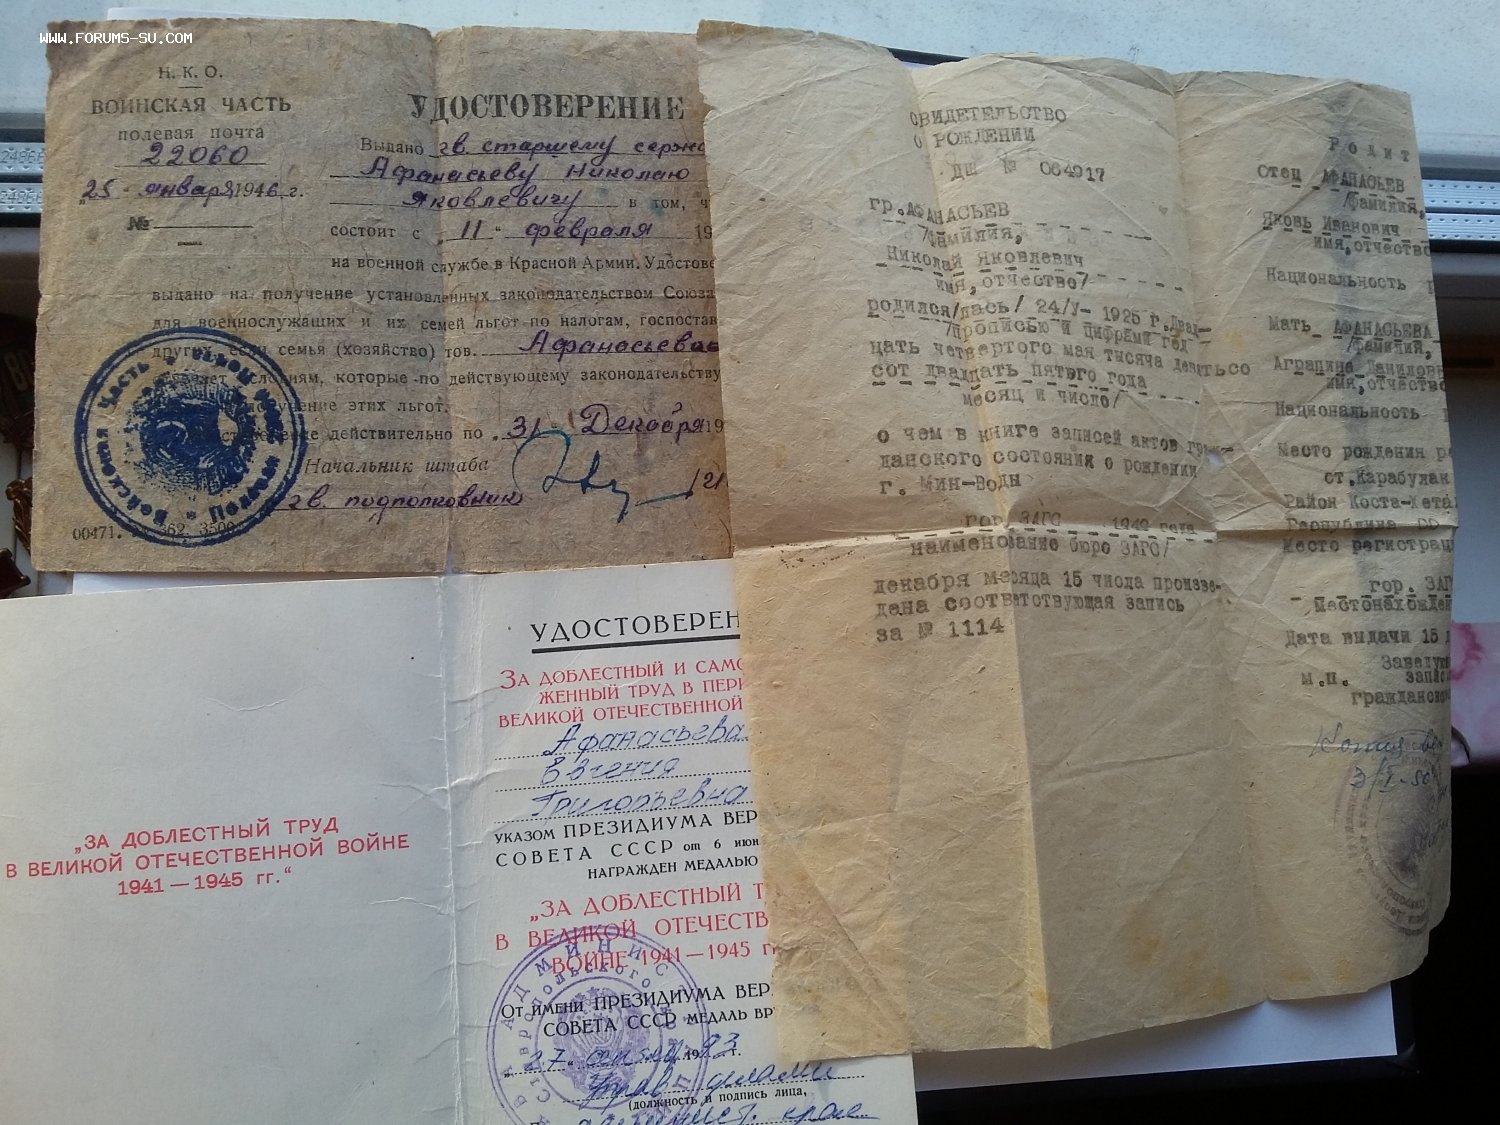 WWW.FORUMS-SU.COM
Н. К. О.
ВОИНСКАЯ ЧАСТЬ
полевая почта
22060
25 января 1946 г.
№
УДОСТОВЕРЕНИЕ
Выдано гв. старшему сержа
Афанасьеву Николаю
Яковлевичу в том, ч
состоит с „11“ февраля 19
на военной службе в Красной Армии. Удостове
выдано на получение установленных законодательством Союза
для военнослужащих и их семей льгот по налогам, госпостав
других если семья (хозяйство) тов. Афанасьева
условиям, которые по действующему законодательству
этих льгот.
действительно по „31“ Декабря 19
Начальник штаба
гв. подполковник
00471. 362. 3500
СВИДЕТЕЛЬСТВО
О РОЖДЕНИИ
ДШ № 064917
гр. АФАНАСЬЕВ
/фамилия,
Николай Яковлевич
имя, отчество/
родился/лась/ 24/У- 1925 г. Двад-
/прописью и цифрами год
цать четвертого мая тысяча девятьсо
сот двадцать пятого года
месяц и число/
о чем в книге записей актов граж-
данского состояния о рождении
г. Мин-Воды
гор. ЗАГС 1949 года
наименование бюро ЗАГС/
декабря месяца 15 числа произве-
дана соответствующая запись
за № 1114
Родит
Отец АФАНАСЬЕВ
/фамилия,
Яковь Иванович
имя, отчество
Национальность
Мать АФАНАСЬЕВА
/фамилия,
Аграпина Даниловн
имя, отчество
Национальность
Место рождения ре
ст. Карабулак
Район Коста-Хетаг
Место регистрац
гор. ЗАГ
Местонахожден
Дата выдачи 15 д
Заведую
м.п. запис
гражданско
Копия ве
„ЗА ДОБЛЕСТНЫЙ ТРУД
В ВЕЛИКОЙ ОТЕЧЕСТВЕННОЙ ВОЙНЕ
1941—1945 гг.“
УДОСТОВЕРЕН
ЗА ДОБЛЕСТНЫЙ И САМО
ЖЕННЫЙ ТРУД В ПЕРИ
ВЕЛИКОЙ ОТЕЧЕСТВЕННОЙ
Афанасьева
Евгения
Григорьевна
УКАЗОМ ПРЕЗИДИУМА ВЕР
СОВЕТА СССР от 6 июн
НАГРАЖДЕН МЕДАЛЬЮ
„ЗА ДОБЛЕСТНЫЙ Т
В ВЕЛИКОЙ ОТЕЧЕСТВ
ВОЙНЕ 1941—1945 г
ОТ ИМЕНИ ПРЕЗИДИУМА ВЕР
СОВЕТА СССР МЕДАЛЬ ВР
„27“ 1993 г.
Управ делами
(должность и подпись лица,